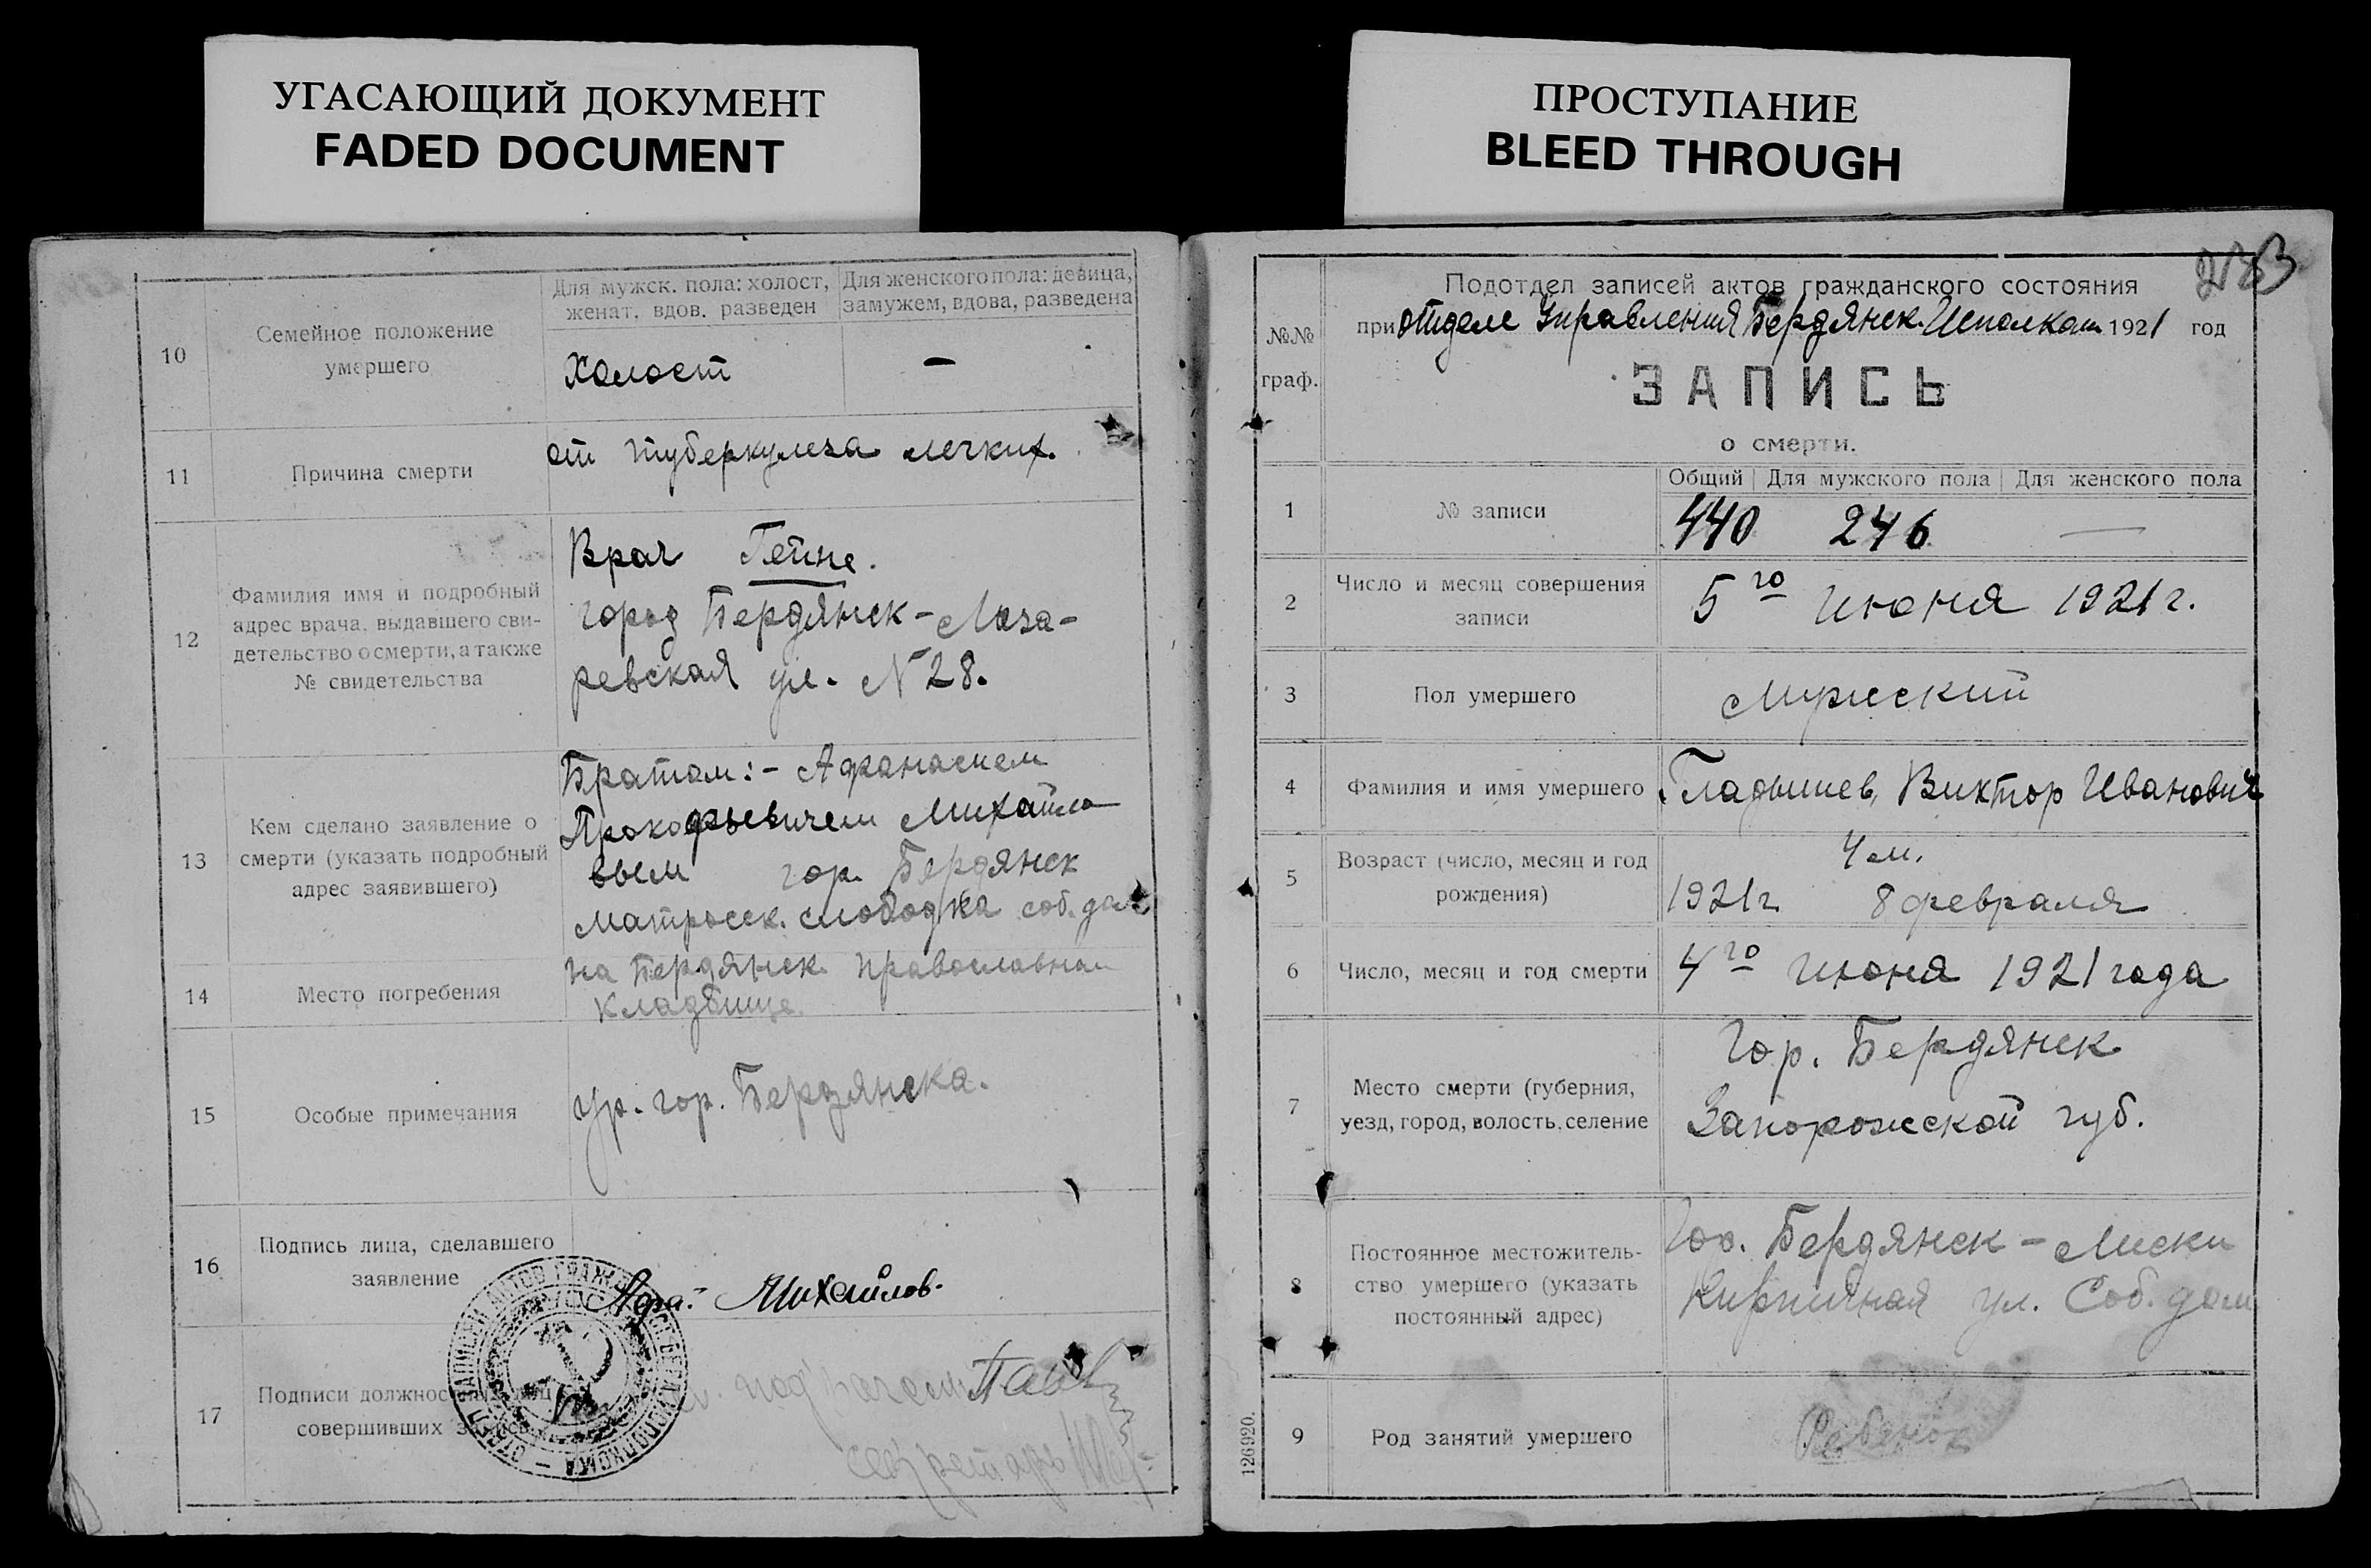 УГАСАЮЩИЙ ДОКУМЕНТ
FADED DOCUMENT
ПРОСТУПАНИЕ
BLEED THROUGH
10
Семейное положение
умершего
Для мужск. пола: холост,
женат, вдов, разведен
Для женского пола: девица,
замужем, вдова, разведена
Холост
—
11
Причина смерти
от туберкулеза легких.
12
Фамилия имя и подробный
адрес врача, выдавшего сви-
детельство о смерти, а также
№ свидетельства
Врач Гейне.
город Бердянск - Лаза-
ревская ул. N 28.
13
Кем сделано заявление о
смерти (указать подробный
адрес заявившего)
Братом: - Афанасием
Прокофьевичем Михайло
вым гор. Бердянск
Матросск. слободка соб. дом
14
Место погребения
на Бердянск. православном
кладбище.
15
Особые примечания
Ур. гор. Бердянска.
16
Подпись лица, сделавшего
заявление
Афа. Михайлов.
17
Подписи должностных лиц
совершивших запись
секретарь
233
№№
граф.
Подотдел записей актов гражданского состояния
при Отделе Управления Бердянск. Исполкома 1921 год
ЗАПИСЬ
о смерти.
Общий Для мужского пола Для женского пола
1
№ записи
440 246 —
2
Число и месяц совершения
записи
5го Июня 1921 г.
3
Пол умершего
Мужеский
4
Фамилия и имя умершего
Гладышев, Виктор Иванович
5
Возраст (число, месяц и год
рождения)
4 м.
1921 г. 8 февраля
6
Число, месяц и год смерти
4го Июня 1921 года
7
Место смерти (губерния,
уезд, город, волость, селение
Гор. Бердянск
Запорожской губ.
8
Постоянное местожитель-
ство умершего (указать
постоянный адрес)
Гор. Бердянск - Лиски
Кирпичная ул. Соб. дом
9
Род занятий умершего
Ребенок
126920.